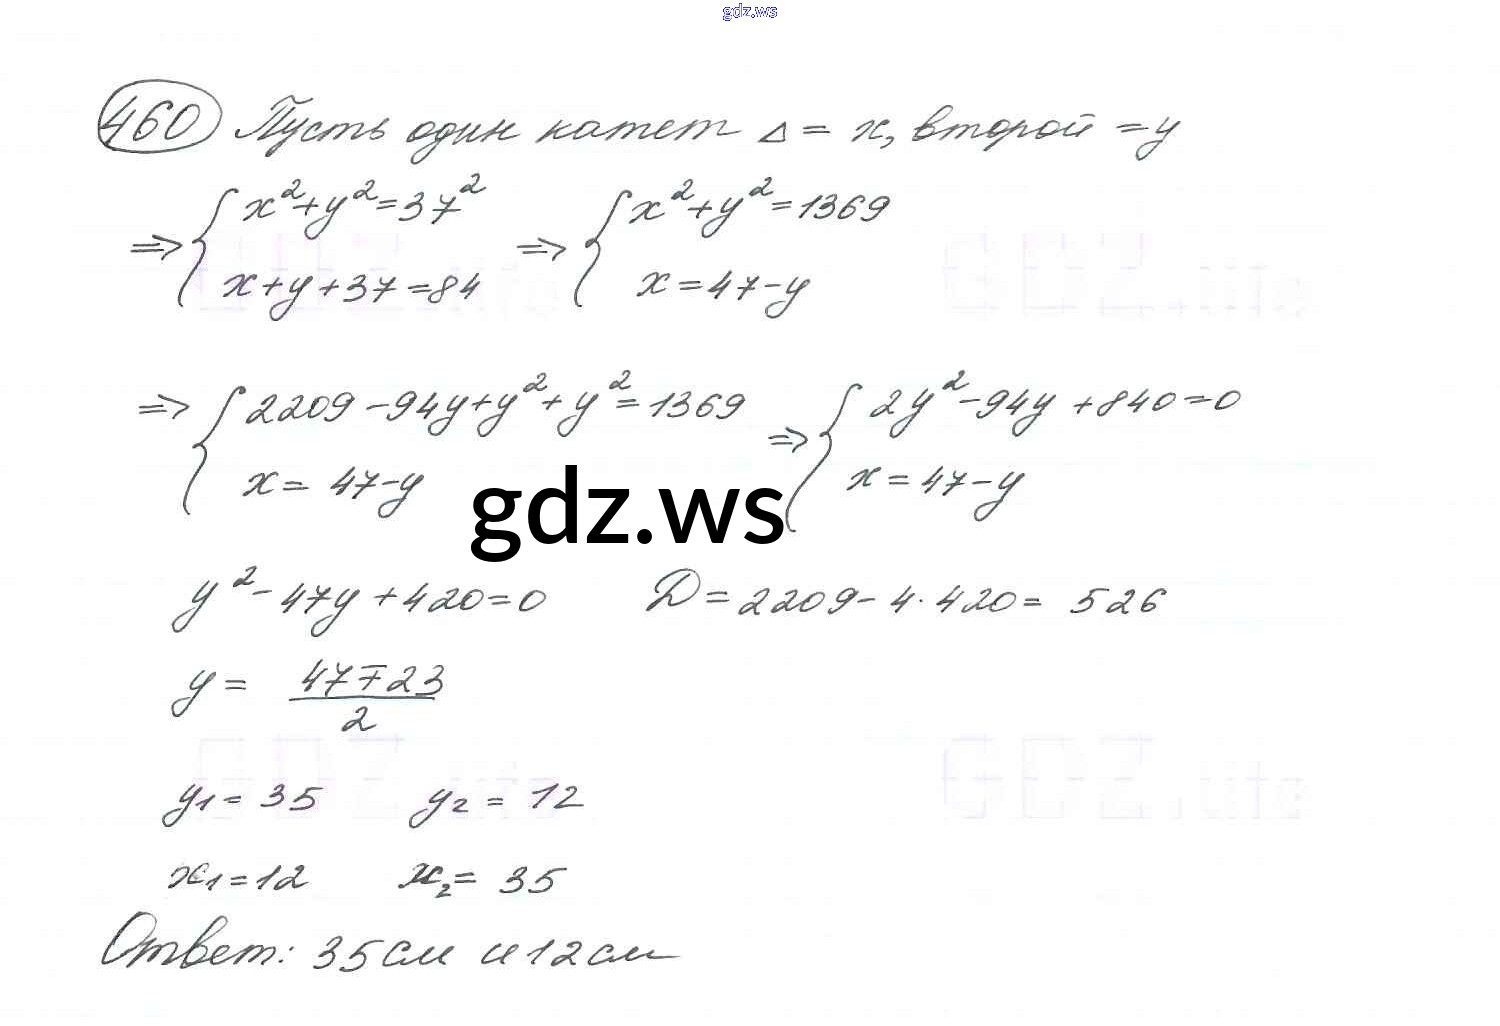 gdz.ws
460 Пусть один катет Δ = x, второй = y
⇒ { x²+y²=37² ⇒ { x²+y²=1369
x+y+37=84 x=47-y
⇒ { 2209-94y+y²+y²=1369 ⇒ { 2y²-94y+840=0
x= 47-y x=47-y
gdz.ws
y²-47y+420=0 D=2209-4·420= 526
y= (47∓23)/2
y₁=35 y₂=12
x₁=12 x₂=35
Ответ: 35см и 12см
GDZ.life
GDZ.life
GDZ.life
GDZ.life